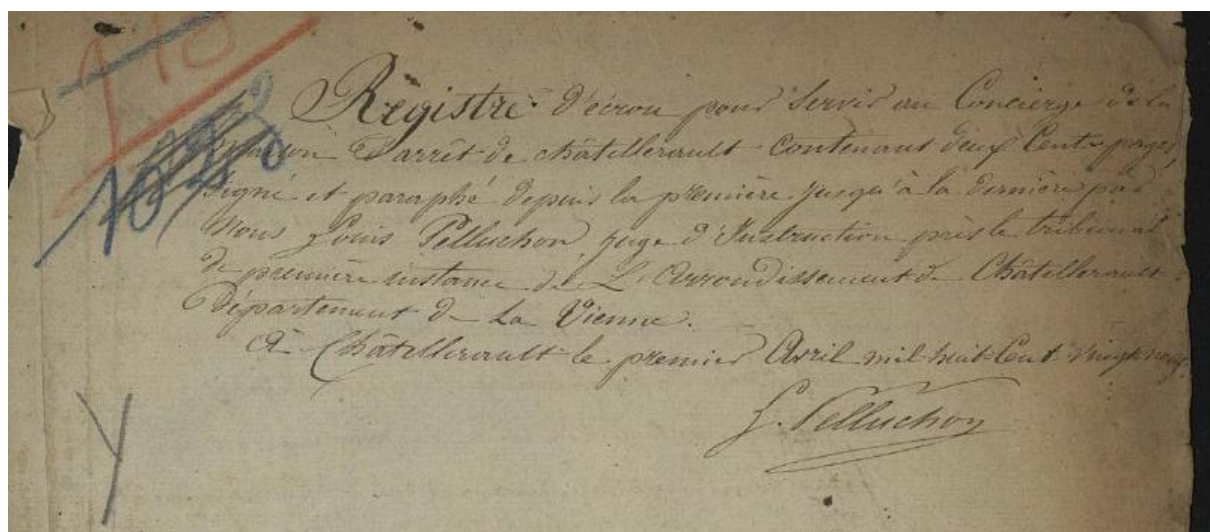 110
Registre d'écrou pour servir au Concierge de la
Maison d'arrêt de châtellerault Contenant deux Cents pages,
signé et paraphé depuis la première jusqu'à la dernière par
Nous Louis Pelluchon juge d'Instruction près le tribunal
de première instance de L'Arrondissement de Châtellerault
Département de La Vienne.
à Châtellerault le premier Avril mil huit Cent vingt neuf.
L. Pelluchon
Y